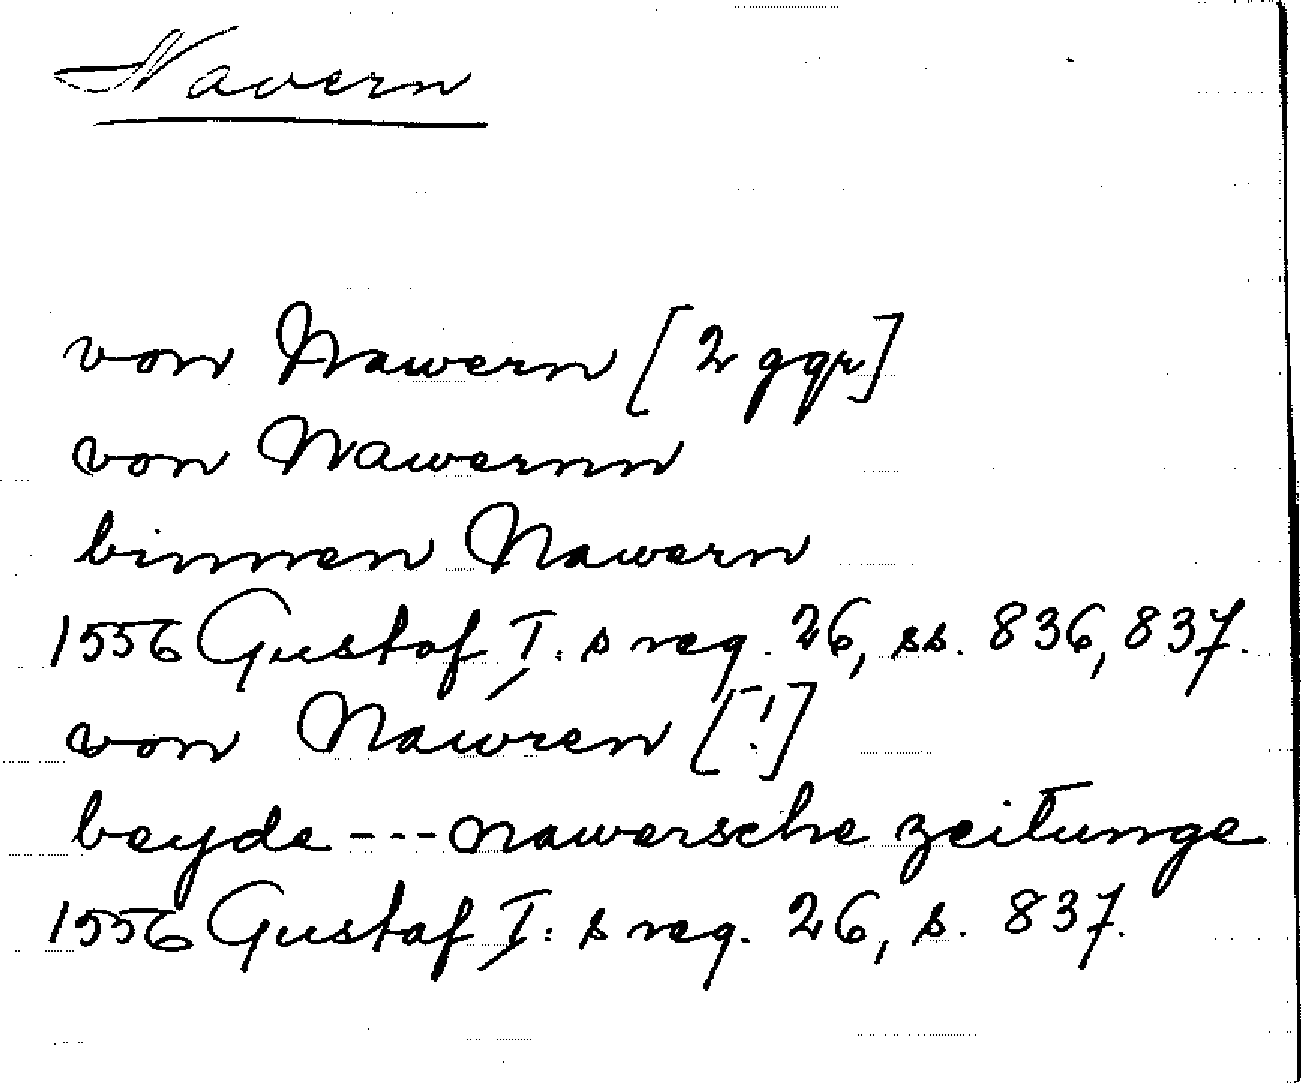 Navern
von Nawern [2 ggr]
von Nawernn
binnen Nawern
1556 Gustaf I:s reg. 26, ss. 836, 837.
von Nawren [!]
beyde --- nawersche zeitunge
1556 Gustaf I:s reg. 26, s. 837.